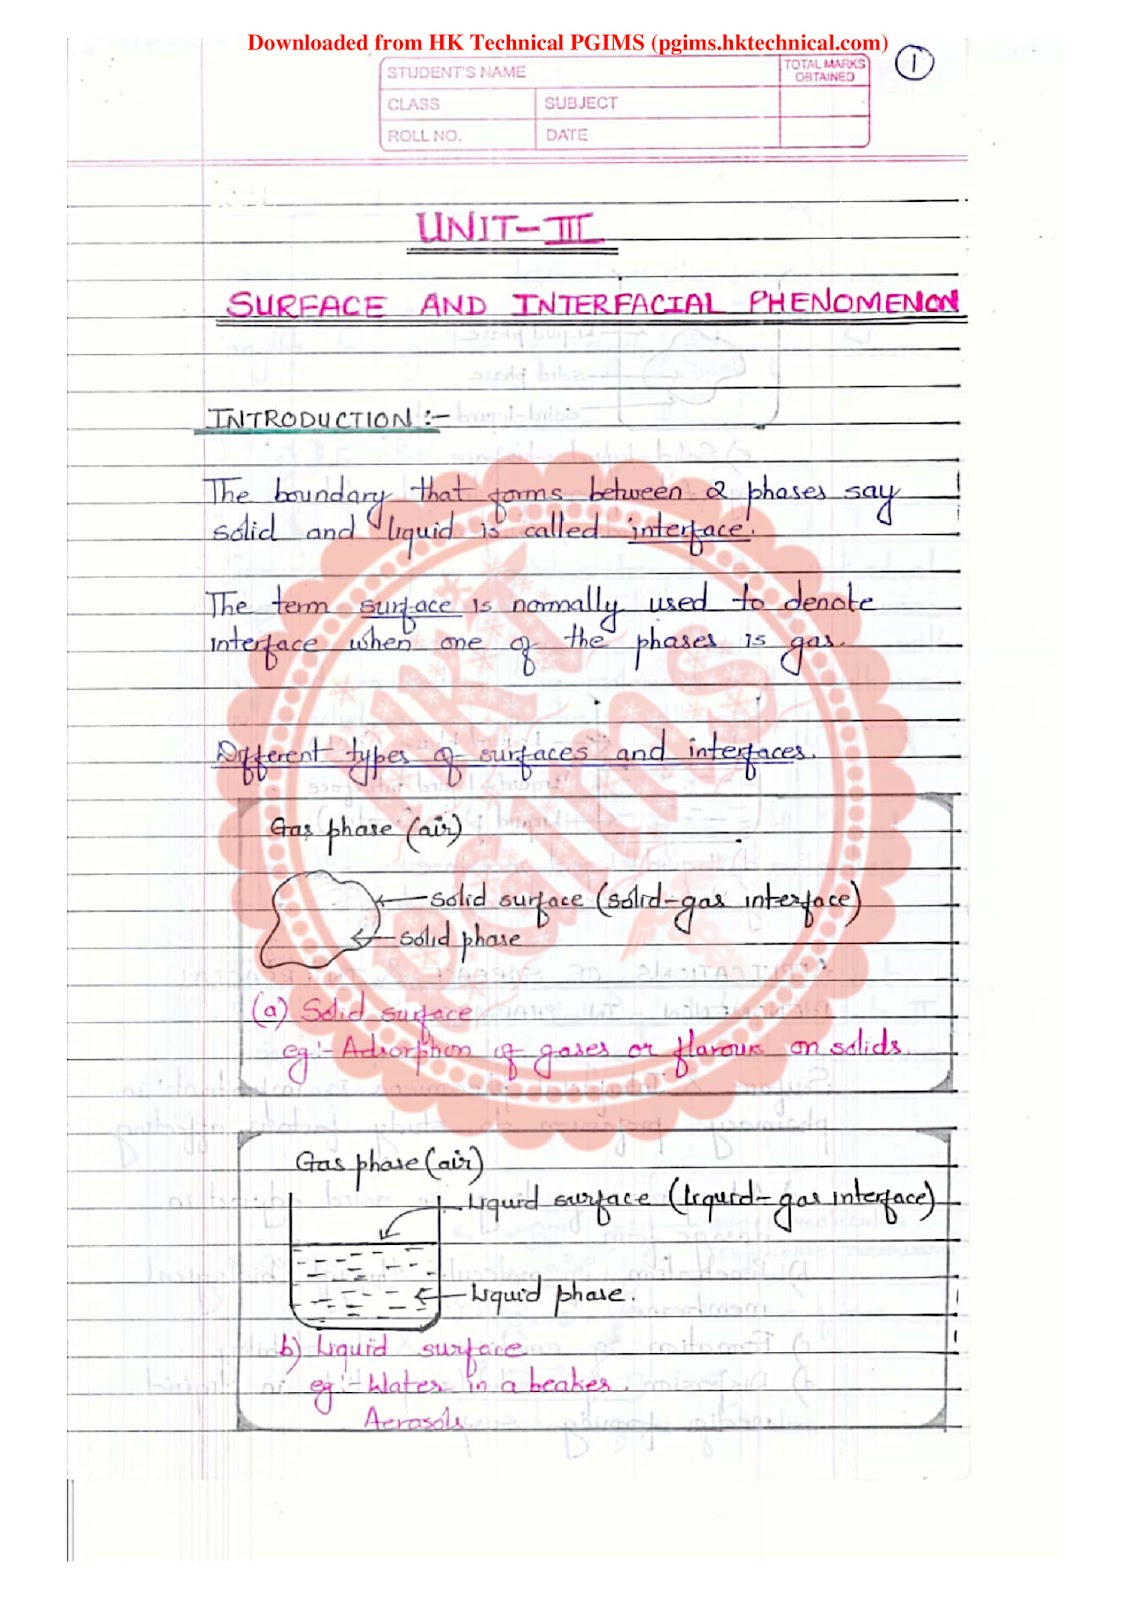 Downloaded from HK Technical PGIMS (pgims.hktechnical.com)
1
STUDENT'S NAME
TOTAL MARKS OBTAINED
CLASS
SUBJECT
ROLL NO.
DATE
UNIT-III
SURFACE AND INTERFACIAL PHENOMENON
INTRODUCTION :-
The boundary that forms between 2 phases say
solid and liquid is called interface.
The term surface is normally used to denote
interface when one of the phases is gas.
Different types of surfaces and interfaces.
Gas phase (air)
Solid surface (solid-gas interface)
Solid phase
(a) Solid surface
eg:- Adsorption of gases or flavour on solids.
Gas phase (air)
Liquid surface (liquid-gas interface)
Liquid phase.
b) Liquid surface
eg:- Water in a beaker.
Aerosols
HKT
PGIMS